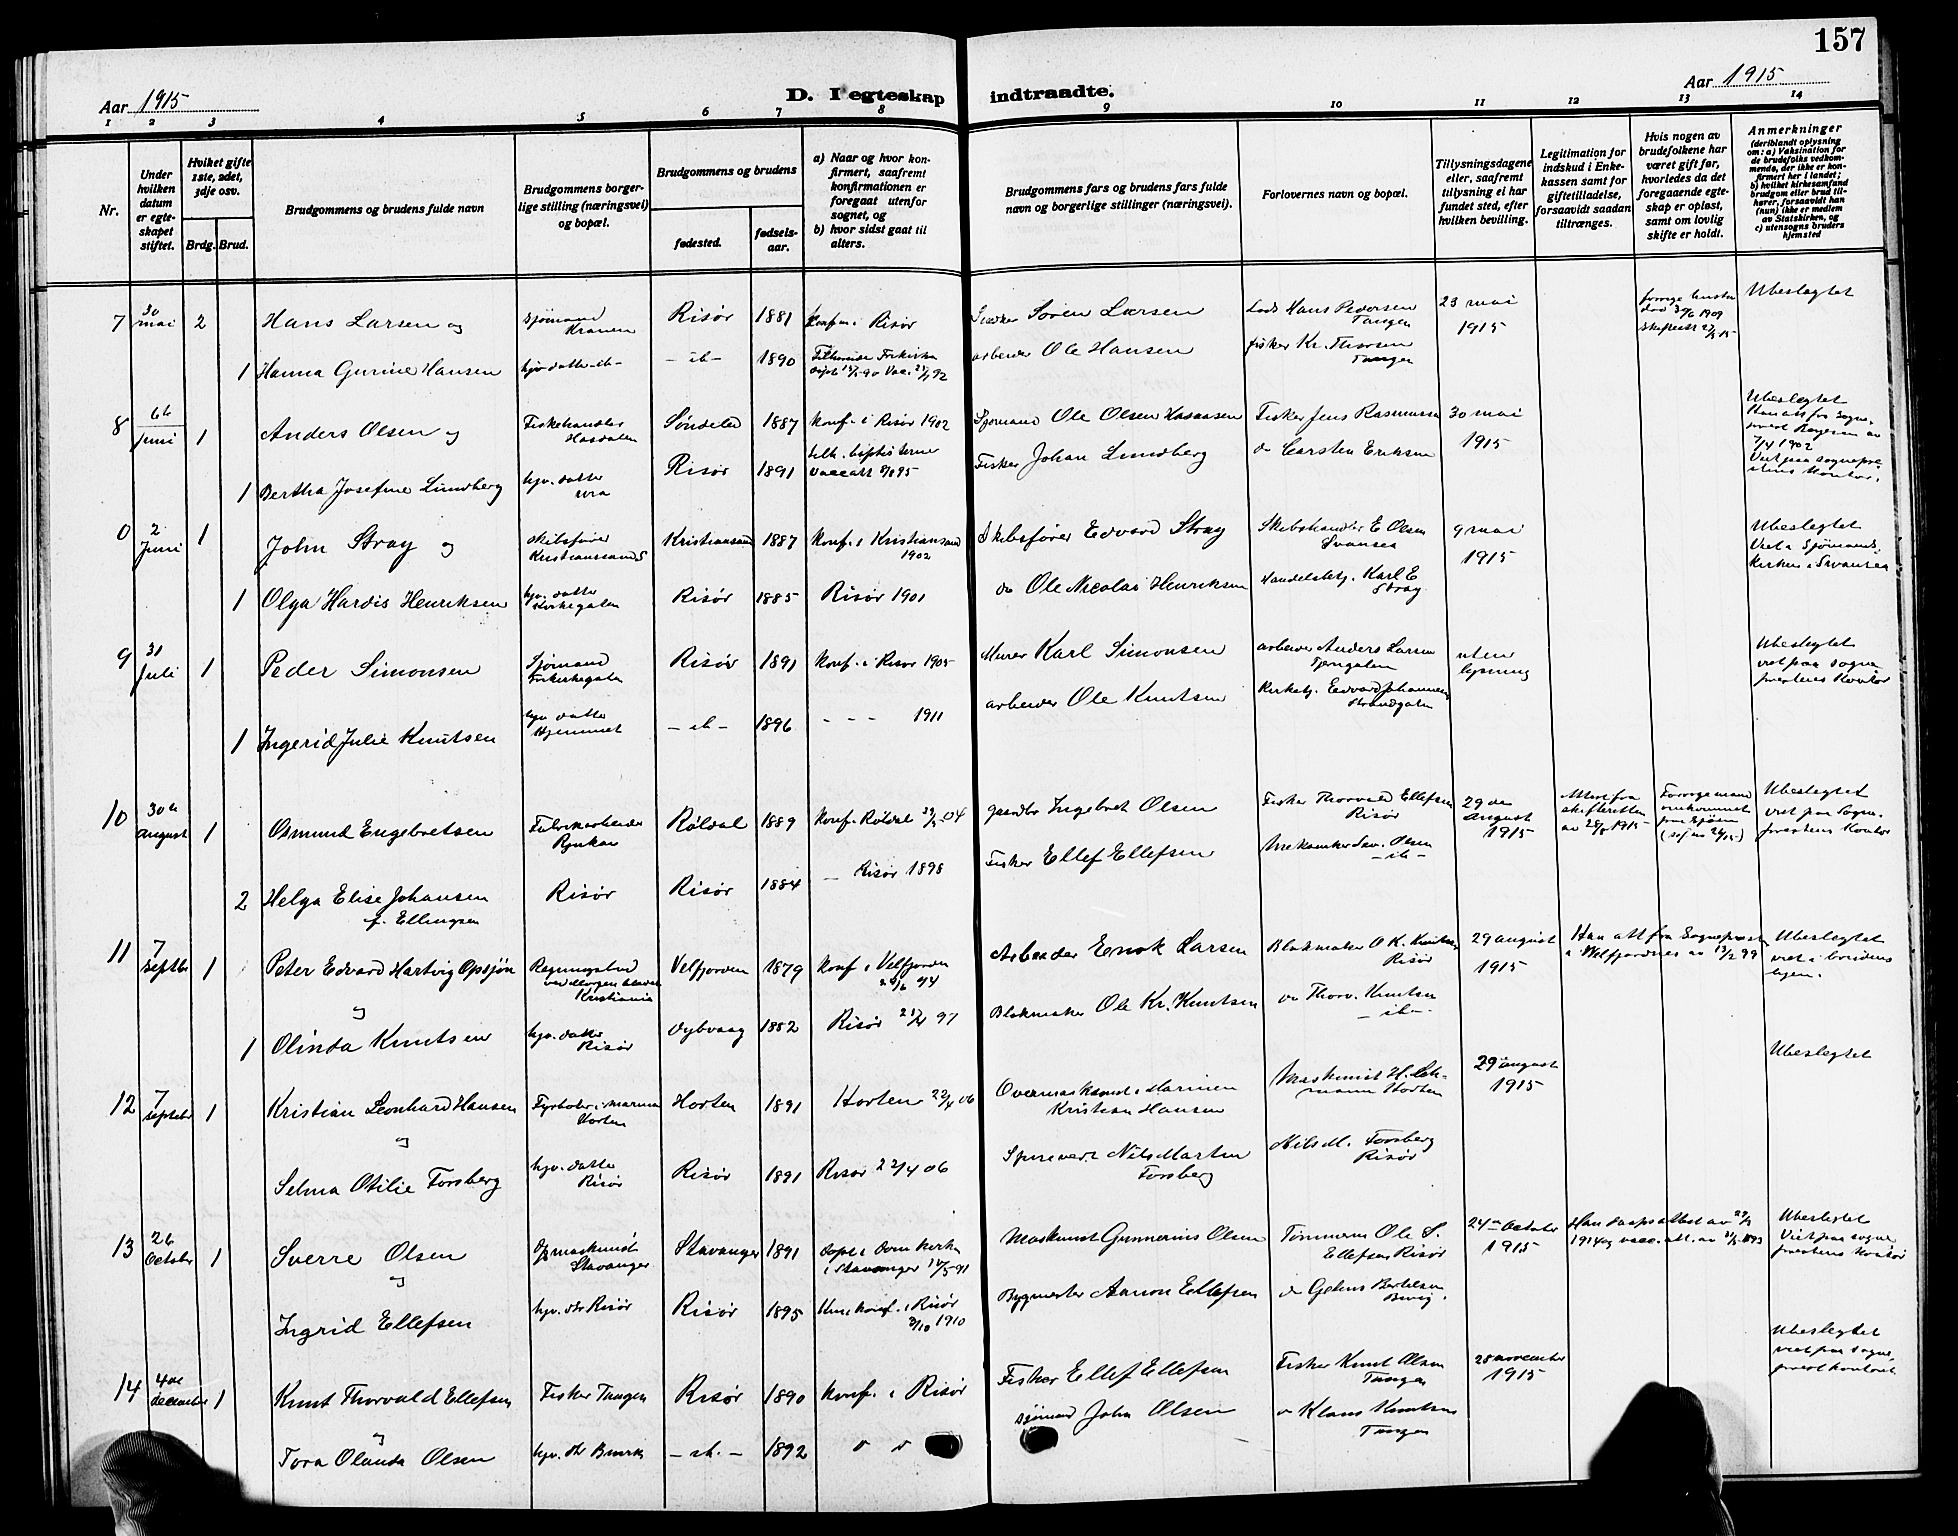 157
Aar 1915
D. I egteskap indtraadte.
Aar 1915
1 2 3 4 5 6 7 8 9 10 11 12 13 14
Nr.
Under hvilken datum er egteskapet stiftet.
Hvilket gifte 1ste, 2det, 3dje osv.
Brdg. Brud.
Brudgommens og brudens fulde navn
Brudgommens borgerlige stilling (næringsvei) og bopæl.
Brudgommens og brudens
fødested.
fødselsaar.
a) Naar og hvor konfirmert, saafremt konfirmationen er foregaat utenfor sognet, og
b) hvor sidst gaat til alters.
Brudgommens fars og brudens fars fulde navn og borgerlige stillinger (næringsvei).
Forlovernes navn og bopæl.
Tillysningsdagene eller, saafremt tillysning ei har fundet sted, efter hvilken bevilling.
Legitimation for indskud i Enkekassen samt for giftetilladelse, forsaavidt saadan tiltrænges.
Hvis nogen av brudefolkene har været gift før, hvorledes da det foregaaende egteskap er opløst, samt om lovlig skifte er holdt.
Anmerkninger (deriblandt oplysning om: a) Vaksination for de brudefolks vedkommende, der ikke er konfirmert her i landet; b) hvilket kirkesamfund brudgom eller brud tilhører, forsaavidt han (hun) ikke er medlem av Statskirken, og c) utensogns bruders hjemsted
7 30 mai 2 Hans Larsen og Sjømand Kranen Risør 1881 konf. i Risør Søren Larsen Lods Hans Pedersen Tangen 23 mai 1915 forrige hustru død Ubeslegtet
1 Hanna Gurine Hansen hjv. datter -ib- -ib- 1890 arbeider Ole Hansen fisker Kr. Thorsen Tangen
8 6te juni 1 Anders Olsen og Fiskehandler Hasdalen Søndeled 1887 konf. i Risør 1902 Sjømand Ole Olsen Fisker Jens Rasmussen 30 mai 1915 Ubeslegtet
1 Bertha Josefine Lundberg hjv. datter Risør 1891 Fisker Johan Lundberg do Carsten Eriksen Viet paa sogneprestens kontor.
0 2 Juni 1 John Stray og skibsfører Kristianssand S Kristiansand 1887 konf. i Kristiansand 1902 Skibsfører Edvard Stray Skibshandler E Olsen Svansea 9 mai 1915 Ubeslegtet Viet i Sjømandskirken i Svansea
1 Olga Hardis Henriksen hjv. datter Kirkegaten Risør 1885 Risør 1901 do Ole Nicolai Henriksen Handelsbetj. Karl E Stray
9 31 Juli 1 Peder Simonsen Sjømand Risør 1891 konf. i Risør 1905 Murer Karl Simonsen arbeider Anders Larsen uten lysning Ubeslegtet viet paa sogneprestens kontor
1 Ingerid Julie Knutsen hjv. datter Hjemmet -ib- 1896 - - - 1911 arbeider Ole Knutsen Edvard Johannesen Strandgaten
10 30te august 1 Osmund Engebretsen Fabrikarbeider Rjukan Røldal 1889 konf. Røldal 04 gaardbr Ingebret Olsen Fisker Thorvald Ellefsen Risør 29de august 1915 Attest fra skifteretten av 1915 Forrige mand omkommet paa sjøen Ubeslegtet viet paa Sogneprestens kontor
2 Helga Elise Johansen f. Ellingsen Risør Risør 1884 - Risør 1898 Fisker Ellef Ellefsen Olsen -ib-
11 7 Septbr 1 Peter Edvard Hartvig Opsjøn og Kristiania Velfjorden 1879 konf i Velfjorden 94 Arbeider Enok Larsen Blokmaker O K. Knutsen Risør 29 august 1915 Han att fra Sognepresten i Velfjordnes av 13/2 99 Ubeslegtet viet i brudens hjem.
1 Olinda Knutsen hjv. datter Risør Dybvaag 1882 Risør 97 Blokmaker Ole Kr. Knutsen do Thorv. Knutsen -ib-
12 7 septbr 1 Kristian Leonhard Hansen og Fyrbøter i marinen Horten Horten 1891 Horten 22/4 06 Overmaskinist i Marinen Kristian Hansen Maskinist H. Lehmann Horten 29 august 1915 Ubeslegtet
Selma Otilie Forsberg hjv. datter Risør Risør 1891 Risør 22/4 06 Nils Martin Forsberg Nils M. Forsberg Risør
13 26 October 1 Sverre Olsen og Stavanger Stavanger 1891 døpt i Domkirken i Stavanger Maskinist Gunnerius Olsen Tømmerm Ole S. Ellefsen Risør 24 October 1915 Han daapsattest av 1914 og vacc. att. av 1893 Ubeslegtet Viet paa sogneprestens kontor
Ingrid Ellefsen hjv. dtr Risør Risør 1895 konf. i Risør 2/10 1910 Bygmester Aanon Ellefsen
14 4de december 1 Knut Thorvald Ellefsen og Fisker Tangen Risør 1890 konf. i Risør Fisker Ellef Ellefsen Fisker Knut Olsen Tangen 28 november 1915 Ubeslegtet viet paa sogneprestkontoret
Tora Olanda Olsen hjv. dtr Buvik -ib.- 1892 sjømand John Olsen do Klaus Knutsen Tangen